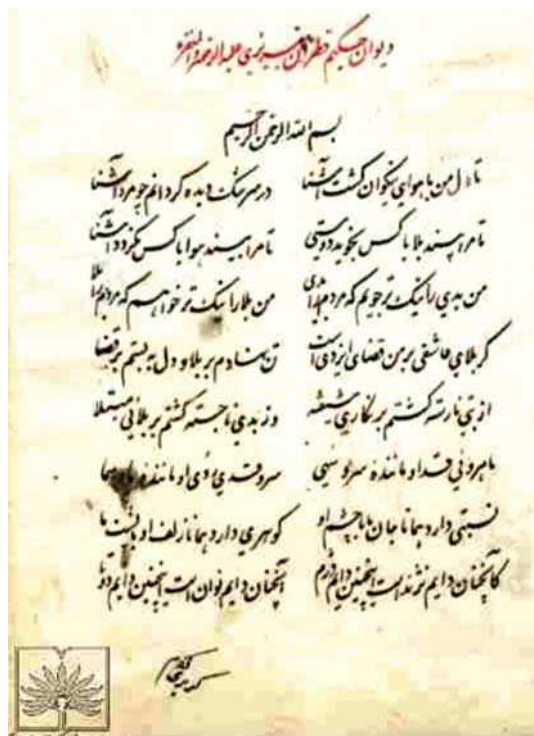 دیوان حکیم قطران تبریزی علیه الرحمة و المغفره
بسم الله الرحمن الرحیم
تا دل من با هوای نیکوان گشت آشنا در سرشک دیده گردانم چو مرد آشنا
تا مرا بیند بلا با کس نجوید دوستی تا مرا بیند هوا با کس نگردد آشنا
من بدی را نیک تر جویم که مردم من بلا را نیک تر خواهم که مردم
گر بلای عاشقی بر من قضای ایزدی است تن نهادم بر بلا و دل به بستم بر قضا
از بتی نارسته گشتم بر نگاری شیفته وز بدی ناجسته گشتم بر بلائی مبتلا
ماهروئی قد او ماننده سرو سهی سرو قدی روی او ماننده
نسبتی دارد همانا جان ما با چشم او گوهری دارد همانا زلف او با پشت ما
کانچنان دایم نژند است اینچنین دایم دژم آنچنان دایم نوان است اینچنین دایم دوتا